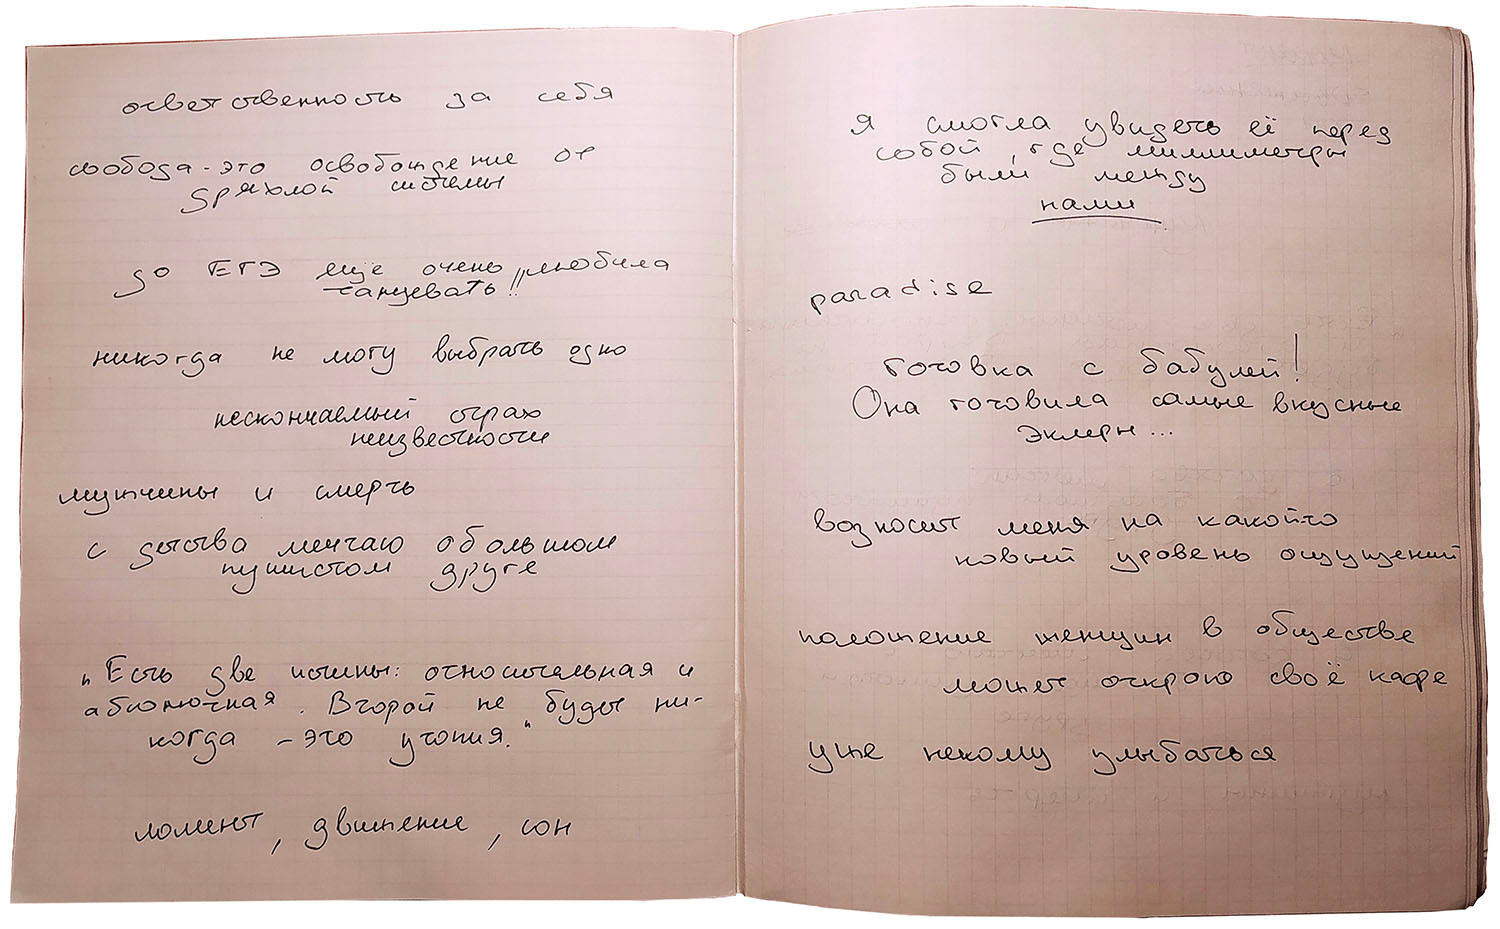 ответственность за себя
свобода - это освобождение от
дряхлой системы
до ЕГЭ еще очень „любила
танцевать"
никогда не могу выбрать одно
нескончаемый страх
неизвестности
мужчины и смерть
с детства мечтаю о большом
пушистом друге
„Есть две истины: относительная и
абсолютная. Второй не будет ни-
когда - это утопия."
момент, движение, сон
я смогла увидеть её перед
собой, где миллиметры
были между
нами
paradise
готовка с бабулей!
Она готовила самые вкусные
эклеры...
возносит меня на какойто
новый уровень ощущений
положение женщин в обществе
может открою своё кафе
уже некому улыбаться